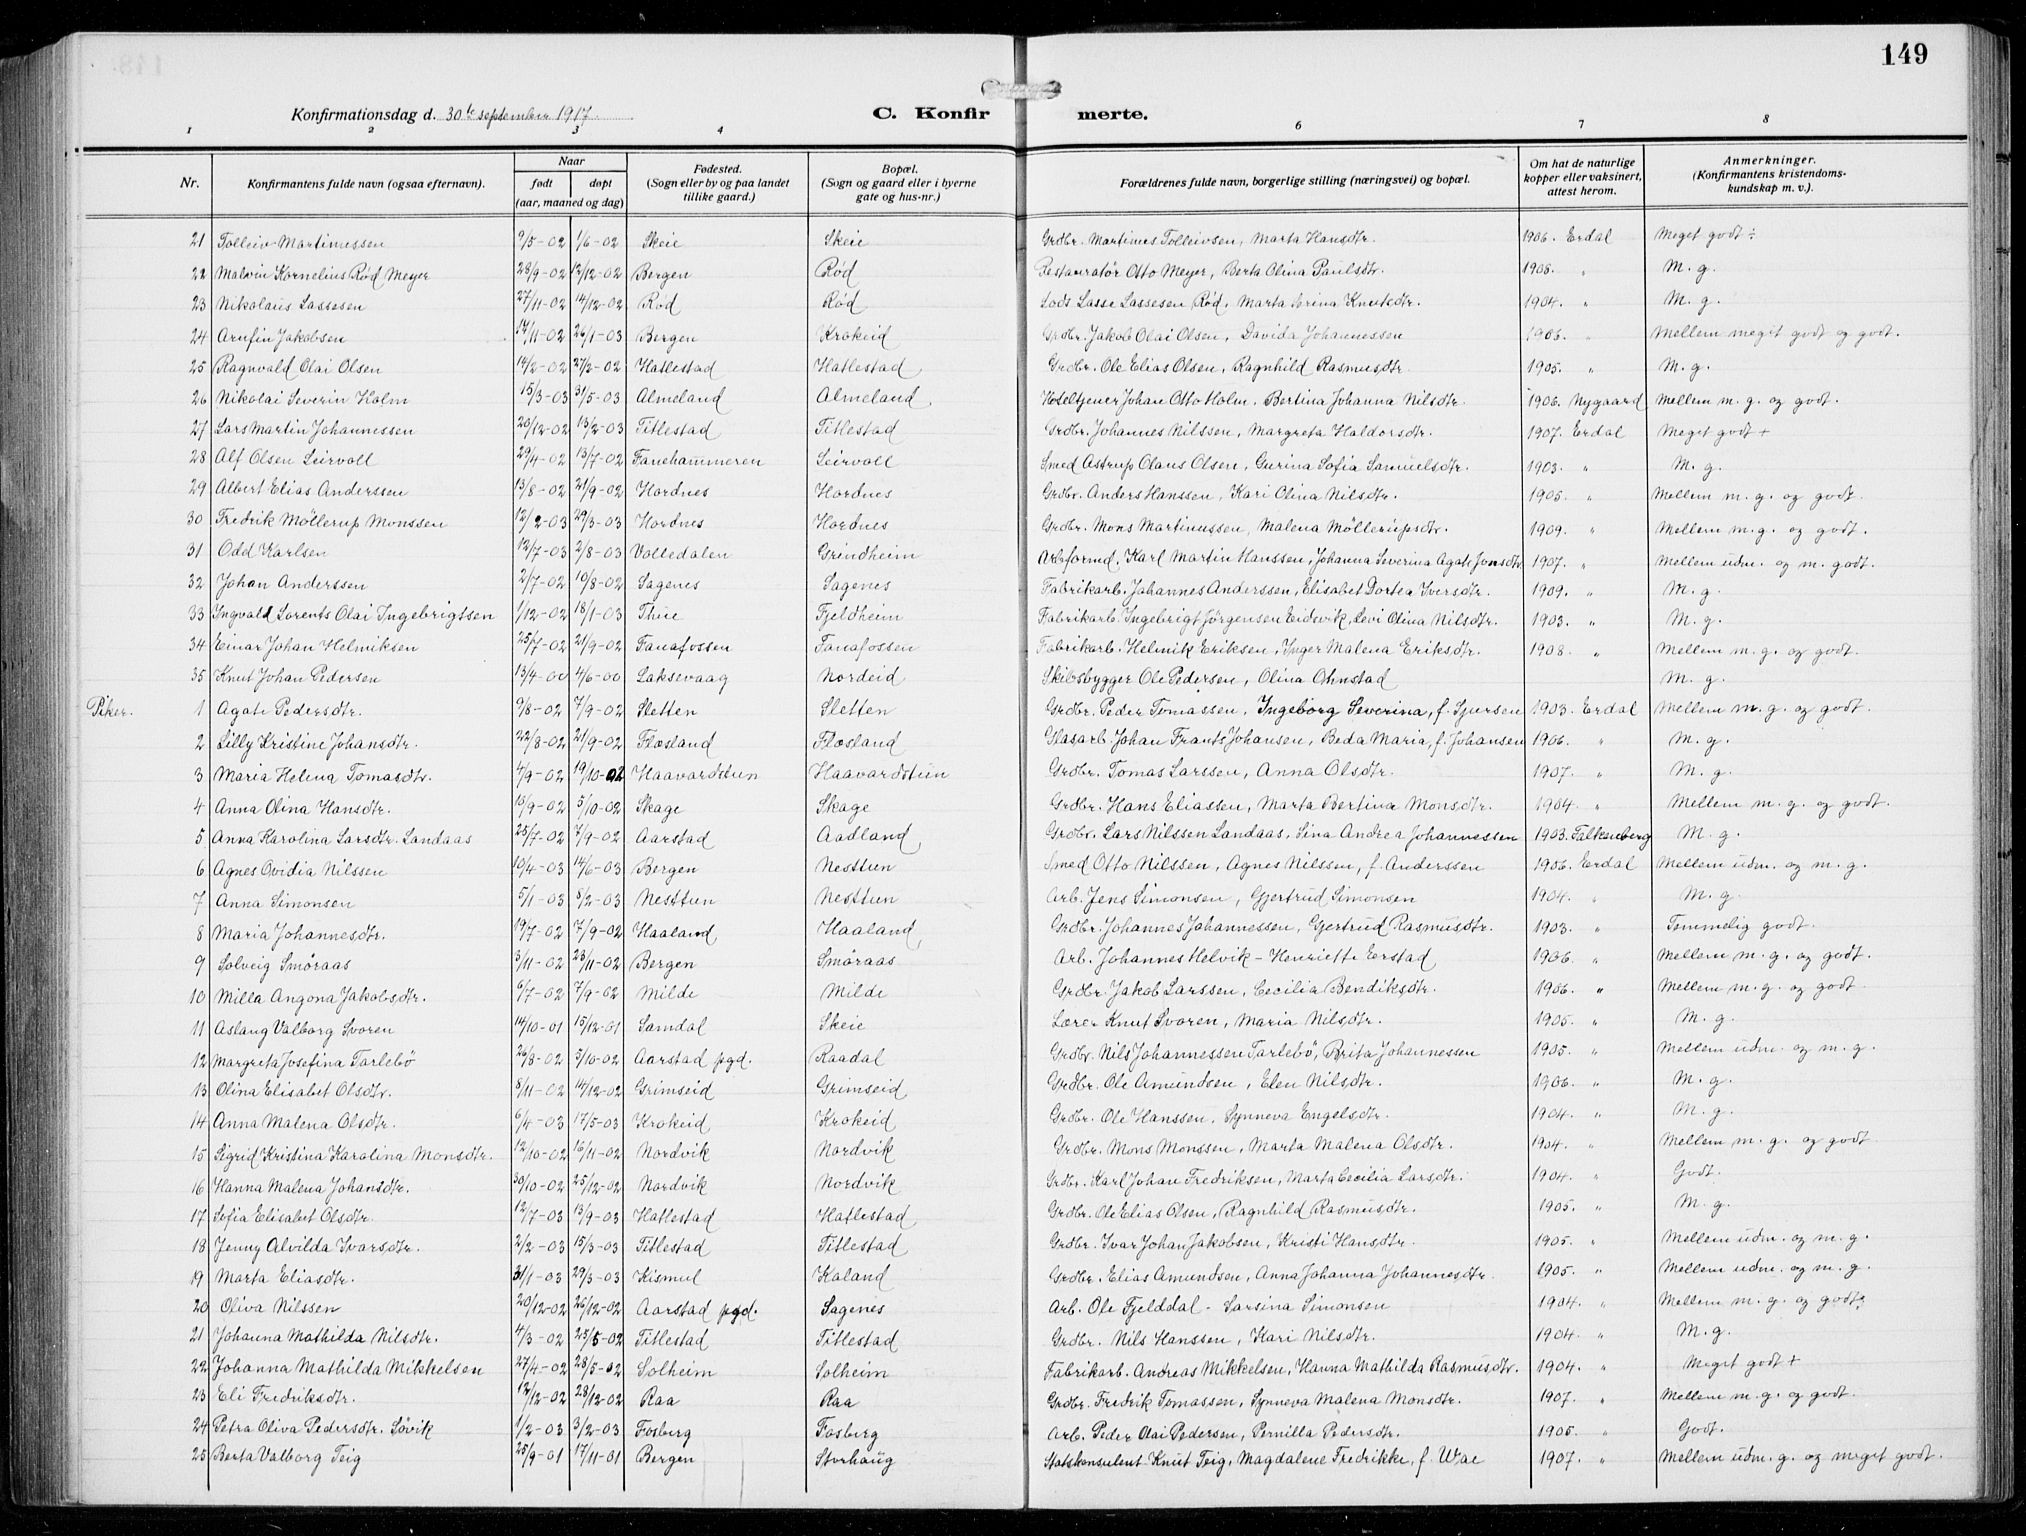 149
Konfirmationsdag d. 30te september 1917. C. Konfirmerte.
1 2 3 4 6 7 8
Nr. Konfirmantens fulde navn (ogsaa efternavn). Naar født døpt (aar, maaned og dag) Fødested. (Sogn eller by og paa landet tillike gaard.) Bopæl. (Sogn og gaard eller i byerne gate og hus-nr.) Forældrenes fulde navn, borgerlige stilling (næringsvei) og bopæl. Om hat de naturlige kopper eller vaksinert, attest herom. Anmerkninger. (Konfirmantens kristendomskundskap m. v.).
21 Tolleiv Martinussen 9/5-02 1/6-02 Skeie Skeie Grdbr. Martines Tolleivsen, Marta Hansdtr. 1906. Erdal Meget godt ÷
22 Malvin Kornelius Rød Meyer 28/9-02 12/12-02 Bergen Rød Restauratør Otto Meyer, Berta Olina Paulsdtr. 1908. „ M. g.
23 Nikolaus Lassesen 27/11-02 14/12-02 Rød Rød Lods Lasse Lassesen Rød, Marta Knutsdtr. 1904. „ M. g.
24 Arnfin Jakobsen 17/11-02 26/1-03 Bergen Krokeid Grdbr. Jakob Olai Olsen, Davida Johannessen 1906. „ Mellem meget godt og godt.
25 Ragnvald Olai Olsen 14/2-02 27/2-02 Hatlestad Hatlestad Grdbr. Ole Elias Olsen, Ragnhild Rasmusdtr. 1905. „ M. g.
26 Nikolai Severin Holm 15/3-03 31/5-03 Almeland Almeland Hoteltjener Johan Otto Holm, Bertina Johanna Nilsdtr. 1906. Nygaard Mellem m. g. og godt.
27 Lars Martin Johannessen 20/12-02 13/2-03 Titlestad Titlestad Grdbr. Johannes Nilssen, Margreta Haldorsdtr. 1907. Erdal Meget godt +
28 Alf Olsen Leirvoll 29/4-02 13/7-02 Fanehammeren Leirvoll Smed Astrup Olaus Olsen, Gurina Sofia Samuelsdtr. 1903. „ M. g.
29 Albert Elias Anderssen 13/8-02 21/9-02 Hordnes Hordnes Grdbr. Anders Hanssen, Kari Olina Nilsdtr. 1905. „ Mellem m. g. og godt.
30 Fredrik Möllerup Monssen 12/2-03 29/3-03 Hordnes Hordnes Grdbr. Mons Martinussen, Malena Möllerupsdtr. 1909. „ Mellem m. g. og godt.
31 Odd Karlsen 12/7-03 2/8-03 Valledalen Grindheim Arbformd. Karl Martin Hanssen, Johanna Severina Agate Jonsdtr. 1907. „ Mellem udm. og m. godt.
32 Johan Anderssen 2/7-02 10/8-02 Sagenes Sagenes Fabrikarb. Johannes Anderssen, Elisabet Dortea Iversdtr. 1909. „ M. g.
33 Ingvald Lorents Olai Ingebrigtsen 1/12-02 18/1-03 Thue Fjeldheim Fabrikarb. Ingebrigt Jørgensen Eidsvik, Levi Olina Nilsdtr. 1903. „ M. g.
34 Einar Johan Helmiksen 25/7-02 21/9-02 Fanafossen Fanafossen Fabrikarb. Helmik Eriksen, Inger Malena Eriksdtr. 1908. „ Mellem m. g. og godt.
35 Knut Johan Pedersen 13/4-00 4/6-00 Laksevaag Nordeid Skibsbygger Ole Pedersen, Olina Ohnstad M. g.
Piker. 1 Agate Pedersdtr. 9/8-02 7/9-02 Sletten Sletten Grdbr. Peder Tomassen, Ingeborg Severina, f. Sjursen 1903. Erdal Mellem m. g. og godt.
2 Lilly Kristine Johansdtr. 22/8-02 21/9-02 Flæsland Flæsland Glasarb. Johan Frants Johansen, Beda Maria, f. Johansen 1906. „ M. g.
3 Maria Helena Tomasdtr. 4/9-02 19/10-02 Haavardstun Haavardstun Grdbr. Tomas Larssen, Anna Olsdtr. 1907. „ M. g.
4 Anna Olina Hansdtr. 15/9-02 5/10-02 Skage Skage Grdbr. Hans Eliassen, Marta Bertina Monsdtr. 1904 „ Mellem m. g. og godt.
5 Anna Karolina Larsdtr. Landaas 25/7-02 7/9-02 Aarstad Aadland Grdbr. Lars Nilssen Landaas, Sina Andrea Johannessen 1903. Falkenberg M. g.
6 Agnes Ovidia Nilssen 10/4-03 14/6-03 Bergen Nesttun Smed Otto Nilssen, Agnes Nilssen, f. Anderssen 1906. Erdal Mellem udm. og m. g.
7 Anna Simonsen 5/1-03 8/2-03 Nesttun Nesttun Arb. Jens Simonsen, Gjertrud Simonsen 1904. „ M. g.
8 Maria Johannesdtr. 19/7-02 7/9-02 Haaland Haaland Grdbr. Johannes Johannessen, Gjertrud Rasmusdtr. 1903. „ Temmelig godt.
9 Solveig Smöraas 3/11-02 23/11-02 Bergen Smöraas Arb. Johannes Helvik - Henriette Erstad 1906. „ Mellem m. g. og godt.
10 Milla Angona Jakobsdtr. 6/7-02 7/9-02 Milde Milde Grdbr. Jakob Larssen, Cecilia Bendiksdtr. 1906. „ Mellem m. g. og godt
11 Aslaug Valborg Svoren 14/10-01 15/12-01 Samdal Skeie Lærer Knut Svoren, Maria Nilsdtr. 1905. „ M. g.
12 Margreta Josefina Tarlebö 26/8-02 5/10-02 Aarstad pgd. Raadal Grdbr. Nils Johannessen Tarlebö, Brita Johannessen 1905. „ Mellem udm. og m. g.
13 Olina Elisabet Olsdtr. 8/11-02 14/12-02 Grimseid Grimseid Grdbr. Ole Amundsen, Elen Nilsdtr. 1906. „ M. g.
14 Anna Malena Olsdtr. 6/4-03 17/5-03 Krokeid Krokeid Grdbr. Ole Hanssen, Synneva Engelsdtr. 1904. „ M. g.
15 Sigrid Kristina Karolina Monsdtr. 12/10-02 16/11-02 Nordvik Nordvik Grdbr. Mons Monssen, Marta Malena Olsdtr. 1904. „ Mellem m. g. og godt
16 Hanna Malena Johansdtr. 30/10-02 25/12-02 Nordvik Nordvik Grdbr. Karl Johan Fredriksen, Marta Cecilia Larsdtr. 1904. „ Godt.
17 Sofia Elisabet Olsdtr. 12/7-03 13/9-03 Hatlestad Hatlestad Grdbr. Ole Elias Olsen, Ragnhild Rasmusdtr. 1905. „ M. g.
18 Jenny Alvilda Ivarsdtr. 2/2-03 15/3-03 Titlestad Titlestad Grdbr. Ivar Johan Jakobsen, Kristi Hansdtr. 1905. „ Mellem udm. og m. g.
19 Marta Eliasdtr. 31/1-03 29/3-03 Kismul Kaland Grdbr. Elias Amundsen, Anna Johanna Johannesdtr. 1905. „ Mellem udm. og m. g.
20 Oliva Nilssen 20/12-02 26/12-02 Aarstad pgd. Sagenes Arb. Ole Fjelddal - Sarsina Simonsen 1904. „ Mellem m. g. og godt
21 Johanna Mathilda Nilsdtr. 4/3-02 25/5-02 Titlestad Titlestad Grdbr. Nils Hanssen, Kari Nilsdtr. 1904. „ M. g.
22 Johanna Mathilda Mikkelsen 27/4-02 28/5-02 Solheim Solheim Fabrikarb. Andreas Mikkelsen, Hanna Mathilda Rasmusdtr. 1904. „ Meget godt +
23 Eli Fredriksdtr. 12/12-02 28/12-02 Raa Raa Grdbr. Fredrik Tomassen, Synneva Malena Monsdtr. 1907. „ Mellem m. g. og godt.
24 Petra Oliva Pedersdtr. Sövik 1/2-03 3/2-03 Fosberg Fosberg Arb. Peder Olai Pedersen, Pernilla Pedersdtr. 1905. „ Godt.
25 Berta Valborg Teig 25/9-01 17/11-01 Bergen Storhaug Statskonsulent Knut Teig, Magdalene Fredrikke, f. Wae 1907. „ Mellem udm. g. og meget godt.